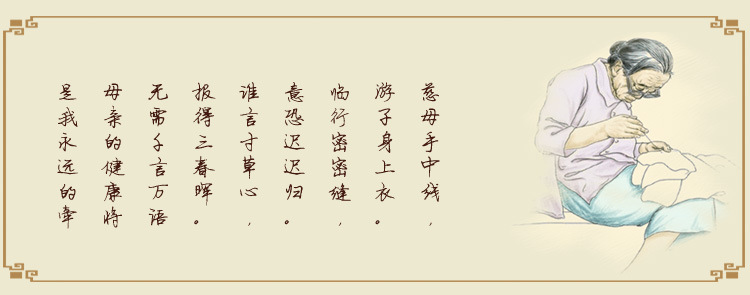 慈母手中线，
游子身上衣。
临行密密缝，
意恐迟迟归。
谁言寸草心，
报得三春晖。
无需千言万语
母亲的健康将
是我永远的牵